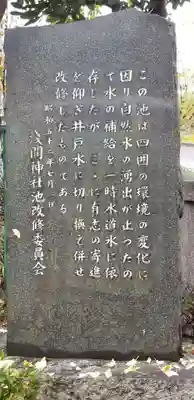 この池は四囲の環境の変化に
因り自然水の湧出が止つたの
で水の補給を一時水道水に依
存したが ここに有志の寄進
を仰ぎ井戸水に切り換え併せ
改修したものである
昭和五十二年七月一日
浅間神社池改修委員会